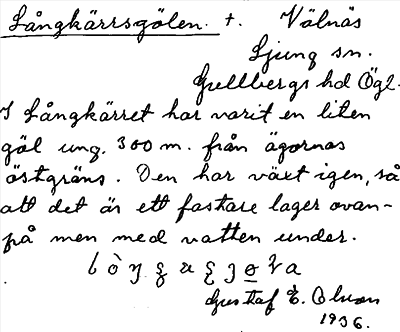 Långkärrsgölen. +. Välnäs
Ljung sn.
Gullbergs hd Ögl.
I Långkärret har varit en liten
göl ung. 300 m. från ägornas
östgräns. Den har växt igen, så
att det är ett fastare lager ovan-
på men med vatten under.
Gustaf E. Olson
1936.